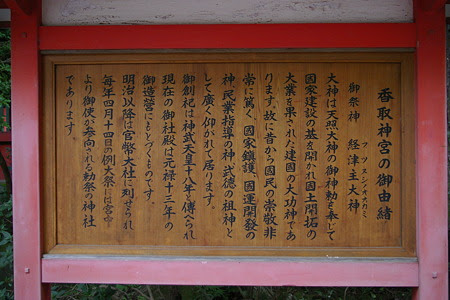 香取神宮の御由緒
御祭神　経津主大神
フツヌシノオオカミ
大神は天照大神の御神勅を奉じて
国家建設の基を開かれ国土開拓の
大業を果された建国の大功神であ
ります。故に昔から国民の崇敬非
常に篤く、国家鎮護、国運開発の
神、民業指導の神、武徳の祖神と
して広く仰がれて居ります。
御創祀は神武天皇十八年と傳へられ
現在の御社殿は元禄十三年の
御造営にもとづくものです。
明治以降は官幣大社に列せられ
毎年四月十四日の例大祭には宮中
より御使が参向される勅祭の神社
であります。